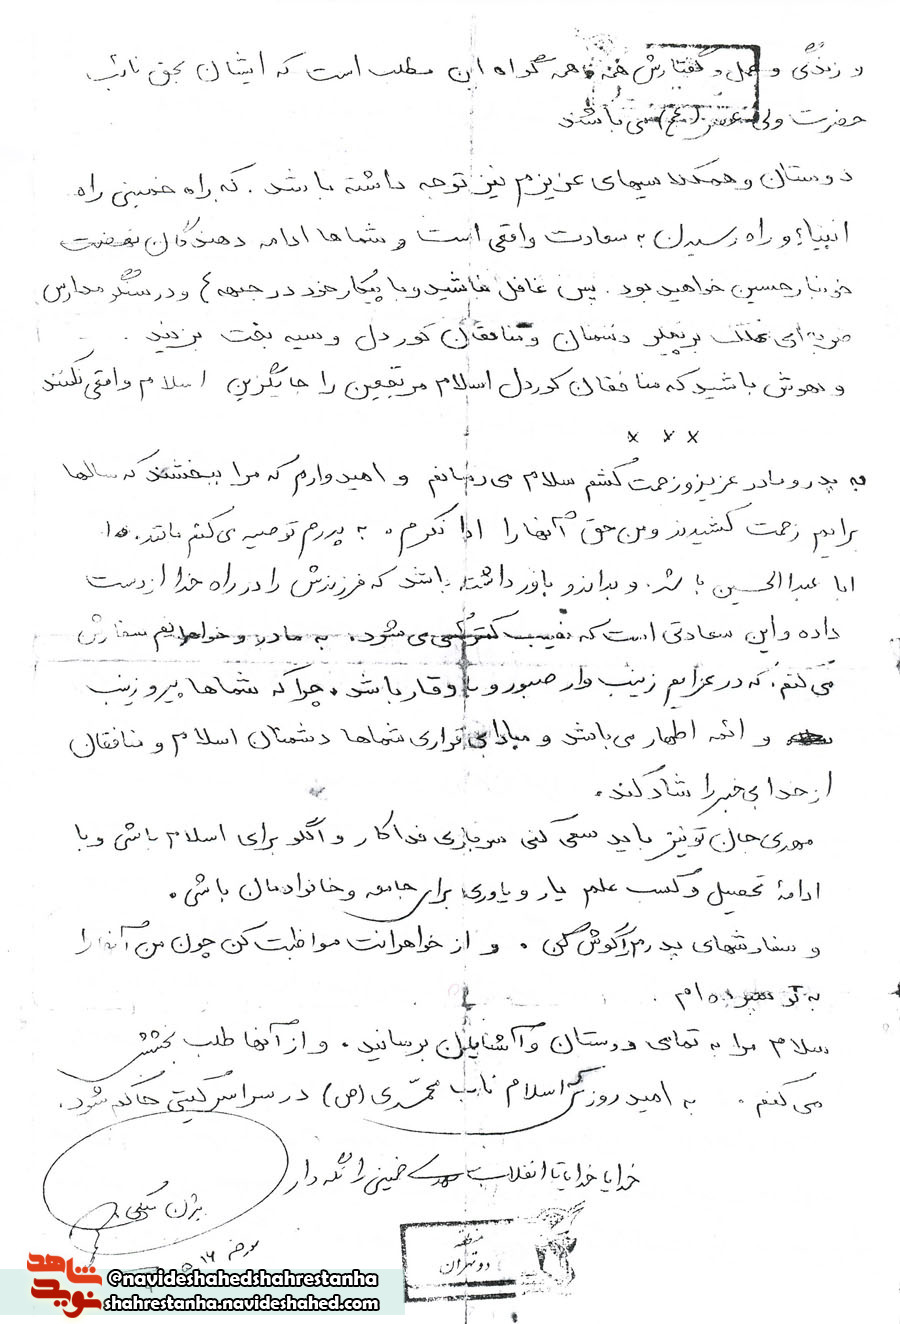 و زندگی و عمل و گفتارش همه همه گواه این مطلب است که ایشان بحق نائب
حضرت ولی عصر (عج) می باشند
دوستان و همکلاسیهای عزیزم نیز توجه داشته باشد. که راه خمینی راه
انبیاء و راه رسیدن به سعادت واقعی است و شماها ادامه دهندگان نهضت
خونبار حسین خواهید بود. پس غافل نباشید و با پیکار خود در جبهه و در سنگر مدارس
ضربه ای مهلک بر پیکر دشمنان و منافقان کوردل و سیه بخت بزنید.
و بهوش باشید که منافقان کوردل اسلام مرتجعین را جایگزین اسلام واقعی نکنند
x x x
به پدر و مادر عزیز و زحمت کشم سلام می رسانم و امیدوارم که مرا ببخشند که سالها
برایم زحمت کشیدند و من حق آنها را ادا نکردم. به پدرم توصیه می کنم مانند
ابا عبدالحسین باشد. و بداند و باور داشته باشد که فرزندش را در راه خدا از دست
داده و این سعادتی است که نصیب کمتر کسی می شود. به مادر و خواهرانم سفارش
می کنم. که در عزایم زینب وار صبور و با وقار باشد. چرا که شماها پیرو زینب
و ائمه اطهار می باشد و مبادا بی قراری شماها دشمنان اسلام و منافقان
از خدا بی خبر را شاد کند.
مهدی جان تو نیز باید سعی کنی سربازی فداکار و الگو برای اسلام باشی و با
ادامهٔ تحصیل و کسب علم یار و یاوری برای جامعه و خانوادمان باشی.
و سفارشهای پدرم را گوش کن. و از خواهرانت مواظبت کن چون من آنها را
به تو سپرده ام.
سلام مرا به تمامی دوستان و آشنایان برسانید. و از آنها طلب بخشش
می کنم. به امید روزی که اسلام ناب محمّدی (ص) در سراسر گیتی حاکم شود.
خدایا خدایا تا انقلاب مهدی خمینی را نگه دار
بیژن
مورخه ۱۶
منطقه
دو تهران
شاهد
نوید
@navideshahedshahrestanha
shahrestanha.navideshahed.com